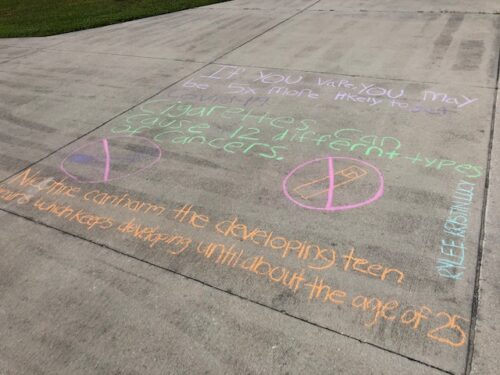 If you vape, you may
be 5x more likely to get
Cigarettes can
cause 12 differnt types
of cancers.
can harm the developing teen
which keeps developing until about the age of 25
RYLEE KRISTIN LUCY